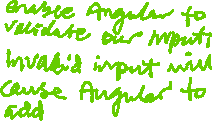 Angular to
validate our input;
Invalid input will
cause Angular to
add